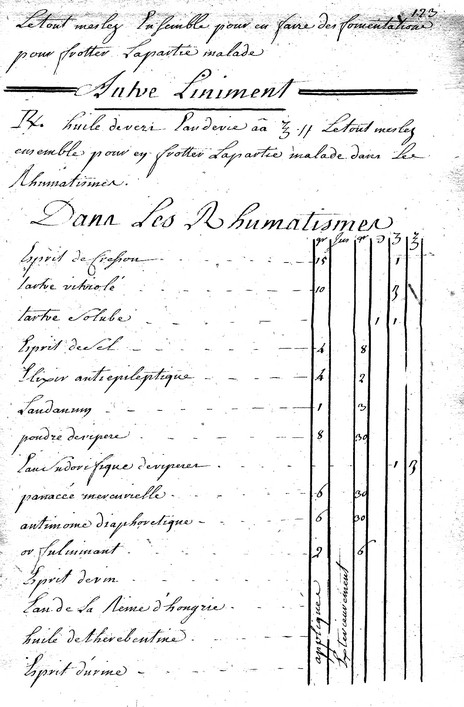 123
Le tout meslez Ensemble pour en faire des fomentations
pour frotter La partie malade
Autre Liniment
R. huile de vers Eau de vie āā ℥ 11 Le tout meslez
ensemble pour en frotter La partie malade dans Les
Rhumatismes.
Dans Les Rhumatismes
gr Jus gr ℈ ʒ ℥
Esprit de Cresson 15 1
tartre vitriolé 10 ʒ
tartre Soluble 1 1
Esprit de Sel 4 8
Elixir antiepileptique 4 2
Laudanum 1 3
poudre de vipere 8 30
Eau Sudorifique de viperes 1 ʒ
panacée mercurielle 6 30
antimoine diaphoretique 6 30
or fulminant 2 6
Esprit de vin
Eau de La Reine d'hongrie
huile de Thérébentine
Esprit d'urine
appliquer Exterieurement